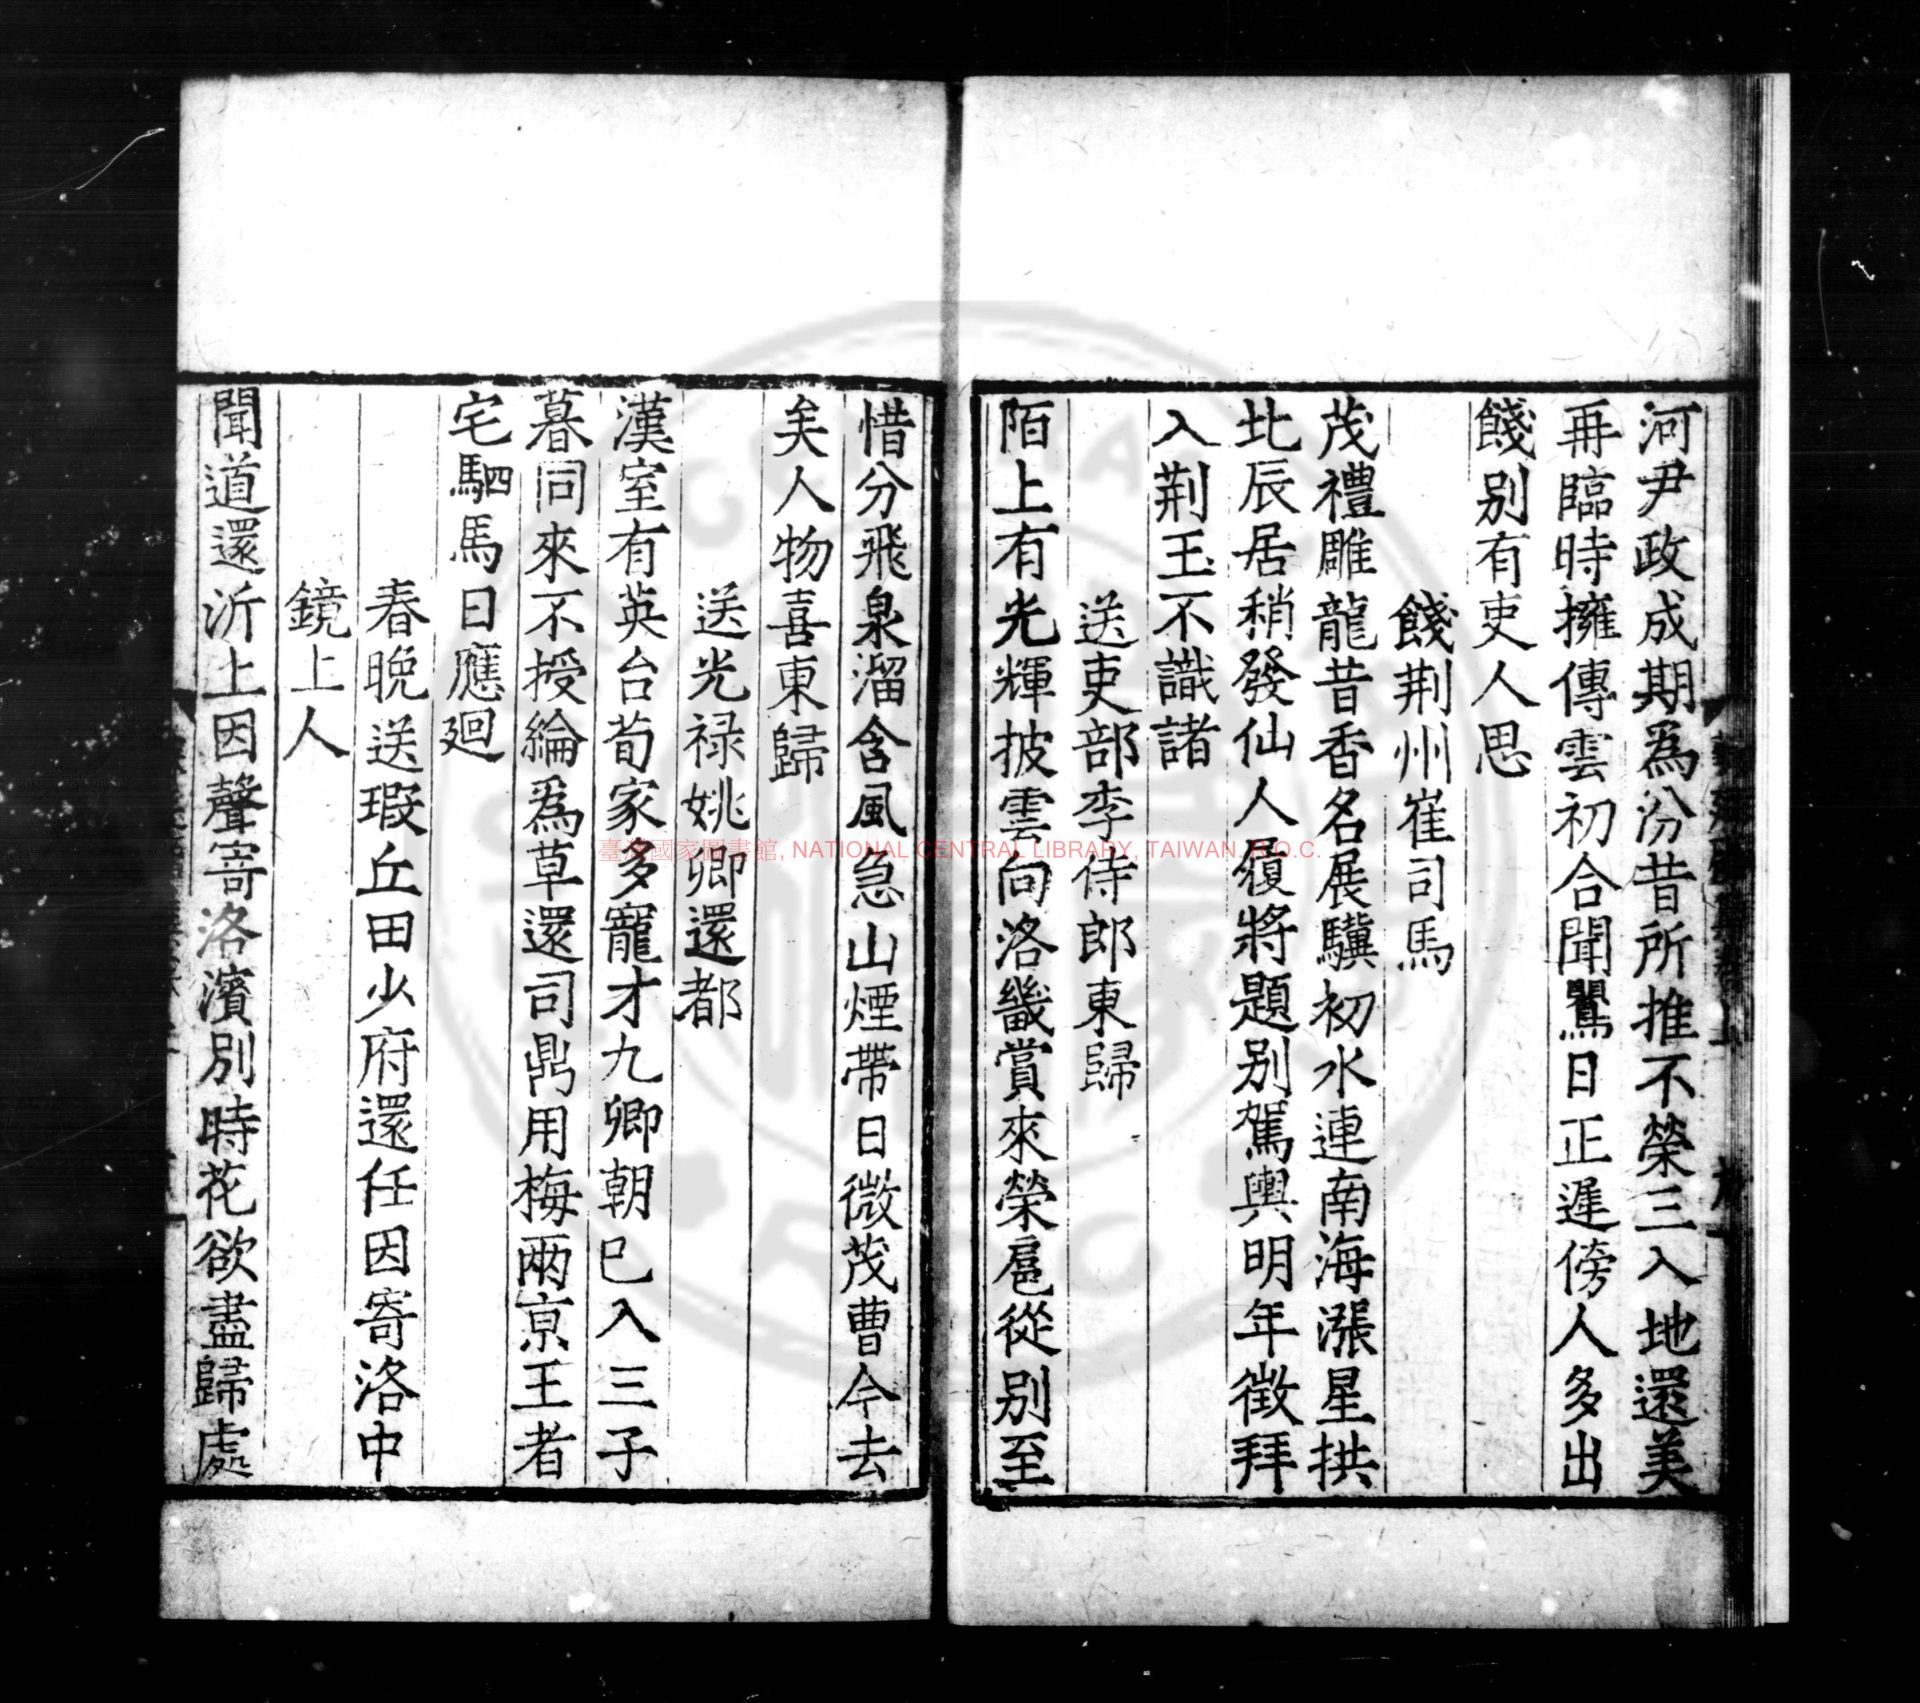 河尹政成期為汾昔所推不榮三入地還美
再臨時擁傳雲初合聞鸎日正遲傍人多出
餞別有吏人思
餞荆州崔司馬
茂禮雕龍昔香名展驥初水連南海漲星拱
北辰居稍發仙人履將題別駕輿明年徵拜
入荆玉不識諸
送吏部李侍郎東歸
陌上有光輝披雲向洛畿賞來榮扈從別至
惜分飛泉溜含風急山煙帶日微茂曹今去
矣人物喜東歸
送光禄姚卿還都
漢室有英台荀家多寵才九卿朝已入三子
暮同來不授綸爲草還司鼎用梅兩京王者
宅駟馬日應廻
春晚送瑕丘田少府還任因寄洛中
鏡上人
聞道還沂上因聲寄洛濱別時花欲盡歸處
臺灣國家圖書館, NATIONAL CENTRAL LIBRARY, TAIWAN. R.O.C.